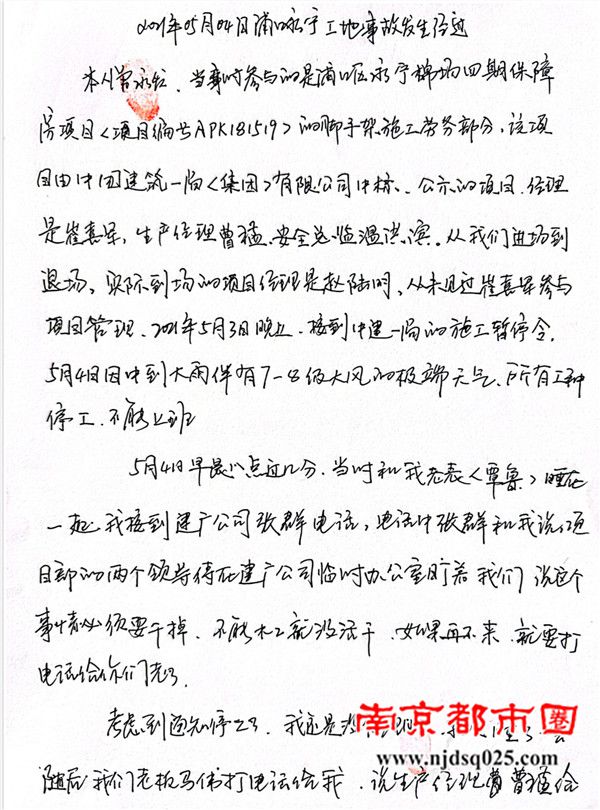 2021年05月04日浦口永宁工地事故发生经过
本人曾永红、当事时参与的是浦口区永宁棉场四期保障
房项目<项目编号APK181519>的脚手架施工劳务部分,该项
目由中国建筑一局<集团>有限公司中标、公示的项目经理
是崔喜杲,生产经理曹猛、安全总监温洪滨。从我们进场到
退场、实际到场的项目经理是赵陆明、从未见过崔喜杲参与
项目管理、2021年5月3日晚上、接到中建一局的施工暂停令、
5月4日因中到大雨伴有7-8级大风的极端天气、所有工种
停工、不能上班
5月4日早晨八点过几分、当时和我老表<覃鲁>睡在
一起我接到建广公司张群电话,电话中张群和我说项
目部的两个领导待在建广公司临时办公室盯着我们说这个
事情必须要干掉、不能木工就没活干、如果再不来、就要打
电话给你们老了。
考虑到通知停工了、我还是没
随后我们老板马伟打电话给我、说生产经理曹猛给
南京都市圈
www.njdsq025.com